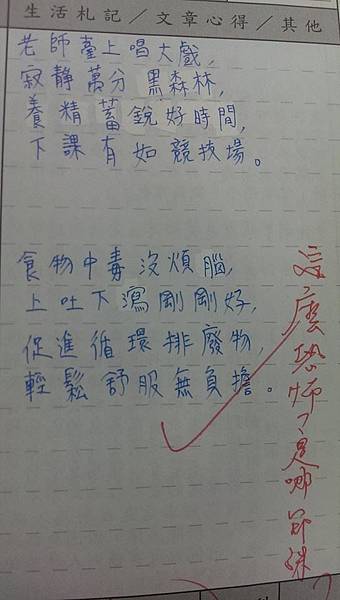 生活札記／文章心得／其他
老師臺上唱大戲，
寂靜萬分黑森林，
養精蓄銳好時間，
下課有如競技場。
食物中毒沒煩腦，
上吐下瀉剛剛好，
促進循環排廢物，
輕鬆舒服無負擔。
這麼恐怖？是哪節課